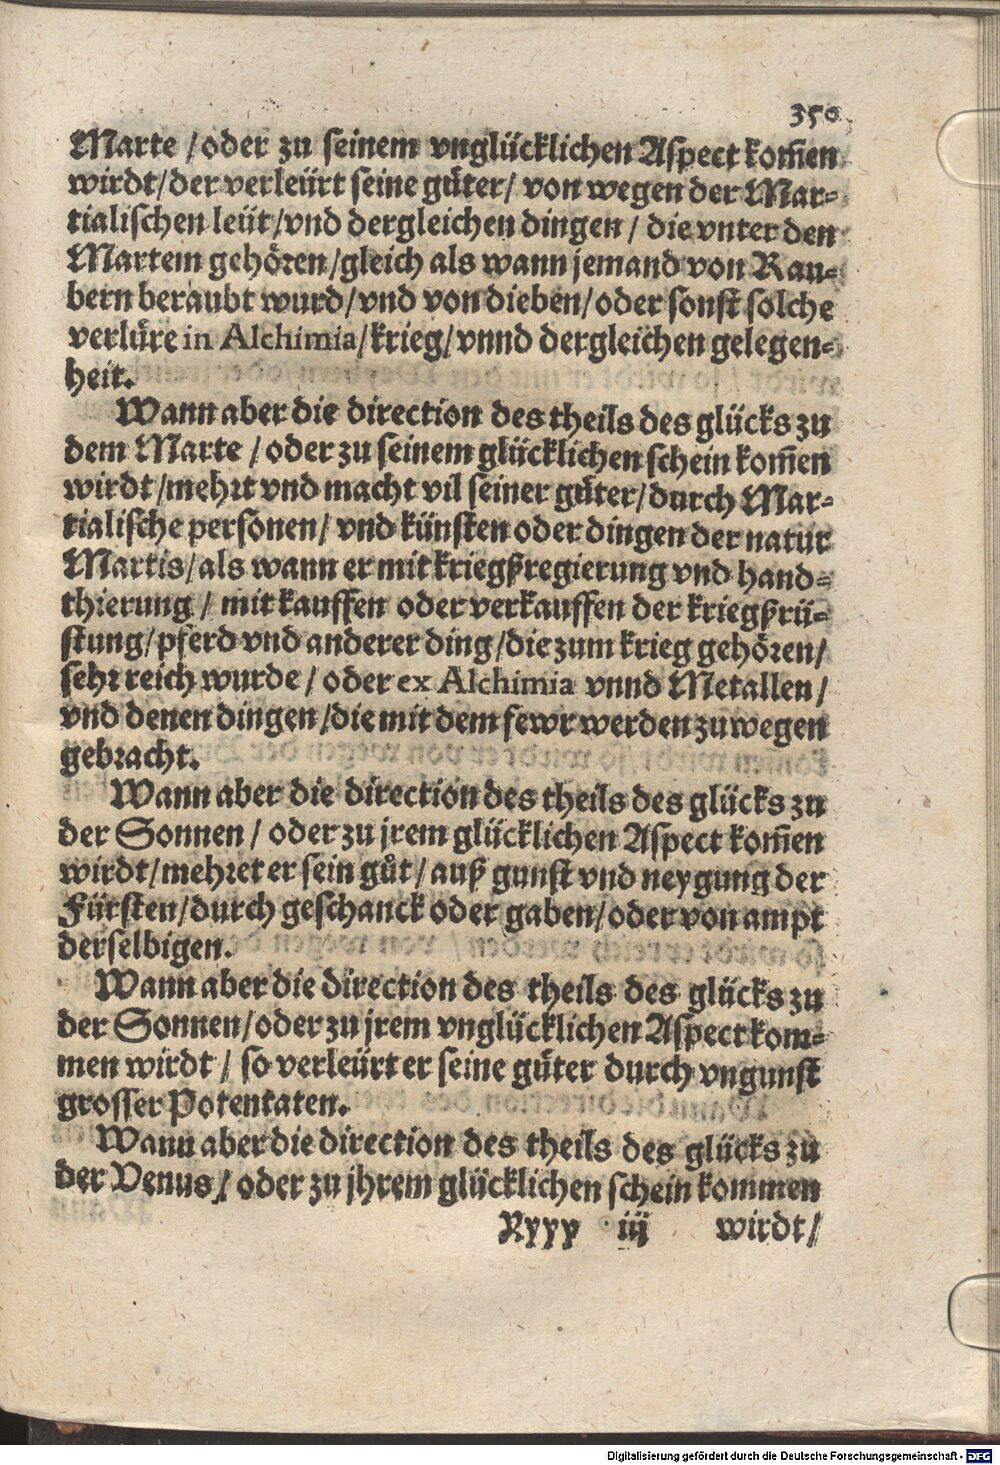 350
Marte / oder zu seinem vnglücklichen Aspect kom̃en
wirdt / der verleürt seine gůter / von wegen der Mar-
tialischen leüt / vnd dergleichen dingen / die vnter den
Martem gehören / gleich als wann jemand von Rau-
bern beraubt wurd / vnd von dieben / oder sonst solche
verlüre in Alchimia / krieg / vnnd dergleichen gelegen-
heit.
Wann aber die direction des theils des glücks zu
dem Marte / oder zu seinem glücklichen schein kom̃en
wirdt / mehrt vnd macht vil seiner gůter / durch Mar-
tialische personen / vnd künsten oder dingen der natur
Martis / als wann er mit kriegßregierung vnd hand-
thierung / mit kauffen oder verkauffen der kriegßrü-
stung / pferd vnd anderer ding / die zum krieg gehören /
sehr reich wurde / oder ex Alchimia vnnd Metallen /
vnd denen dingen / die mit dem fewr werden zuwegen
gebracht.
Wann aber die direction des theils des glücks zu
der Sonnen / oder zu jrem glücklichen Aspect kom̃en
wirdt / mehret er sein gůt / auß gunst vnd neygung der
Fürsten / durch geschanck oder gaben / oder von ampt
derselbigen.
Wann aber die direction des theils des glücks zu
der Sonnen / oder zu jrem vnglücklichen Aspect kom-
men wirdt / so verleürt er seine gůter durch vngunst
grosser Potentaten.
Wann aber die direction des theils des glücks zu
der Venus / oder zu jhrem glücklichen schein kommen
Ryyy iij wirdt /
Digitalisierung gefördert durch die Deutsche Forschungsgemeinschaft - DFG